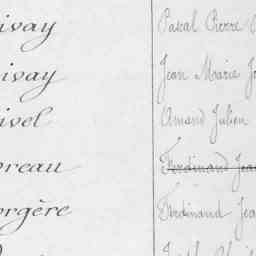 ivay Pascal Pierre
ivay Jean Marie
ivel Amand Julien
reau Ferdinand Jea
rgère Ferdinand Jea